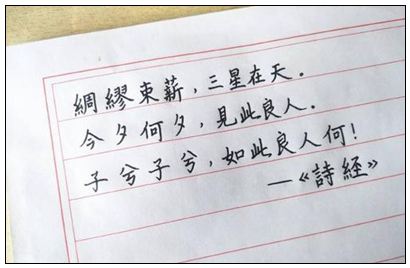 綢繆束薪，三星在天。
今夕何夕，見此良人。
子兮子兮，如此良人何！
—《詩經》